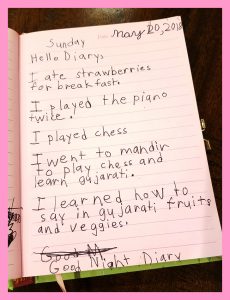 Date: May 20, 2018
Sunday
Hello Diary,
I ate strawberries
for breakfast.
I played the piano
twice.
I played chess
I went to mandir
to play chess and
learn gujarati.
I learned how to
say in gujarati fruits
and veggies.
Good N
Good Night Diary